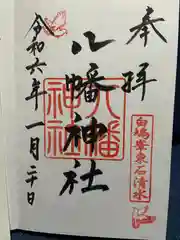 奉拝
白鳩峯東石清水
八幡神社
八幡
神社
令和六年一月二十日